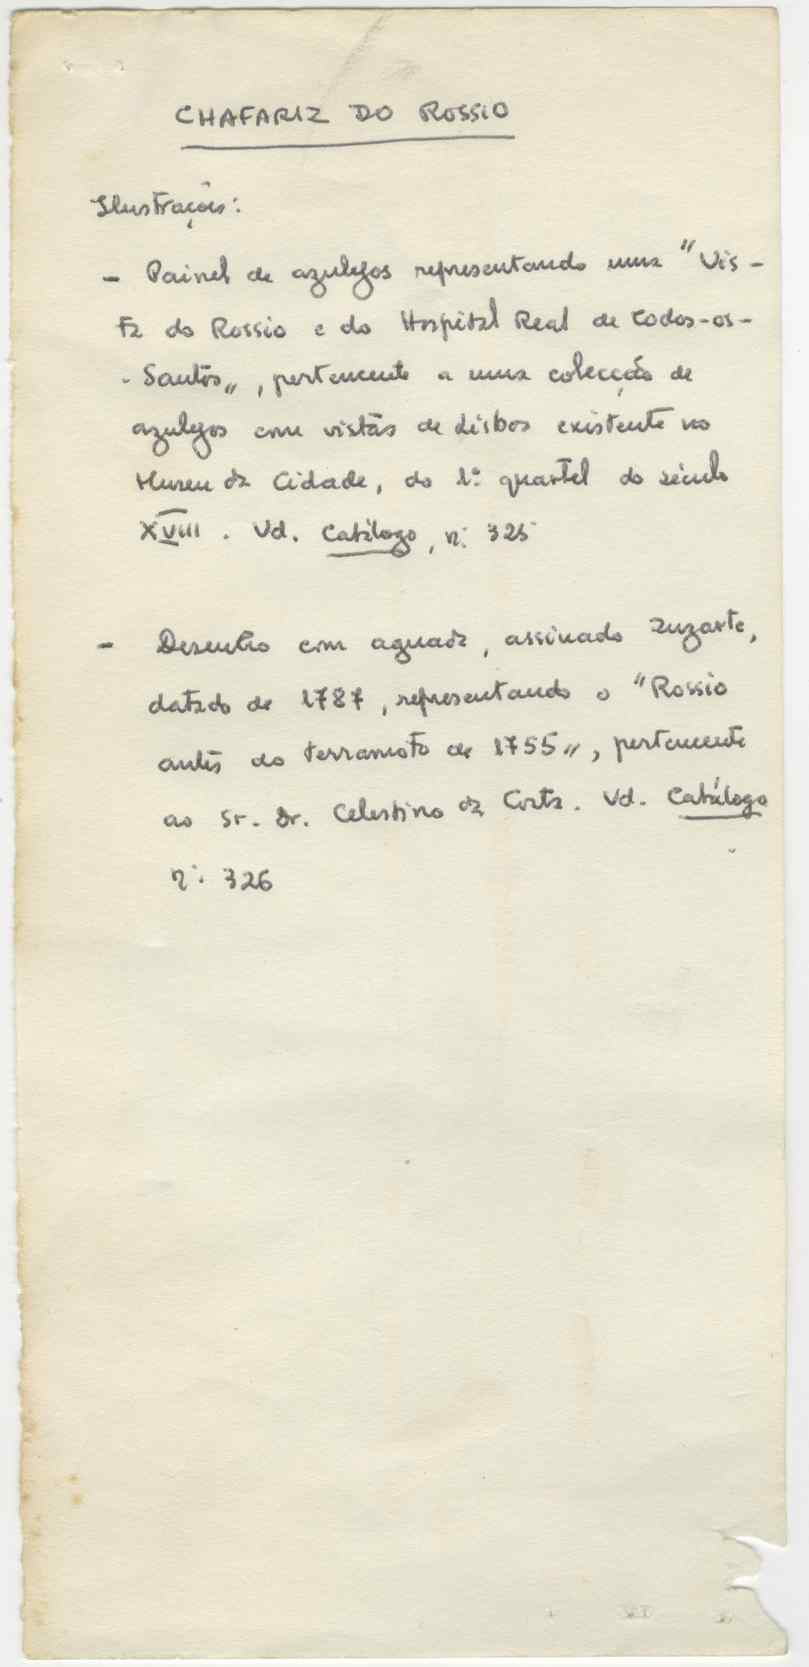 CHAFARIZ DO ROSSIO
Ilustrações:
- Painel de azulejos representando uma "Vis-
ta do Rossio e do Hospital Real de Todos-os-
-Santos", pertencente a uma colecção de
azulejos com vistas de Lisboa existente no
Museu da Cidade, do 1º quartel do século
XVIII. Vd. Catálogo, nº 325
- Desenho com aguada, assinado Zuzarte,
datado de 1787, representando o "Rossio
antes do terramoto de 1755", pertencente
ao Sr. Dr. Celestino da Costa. Vd. Catálogo
nº 326